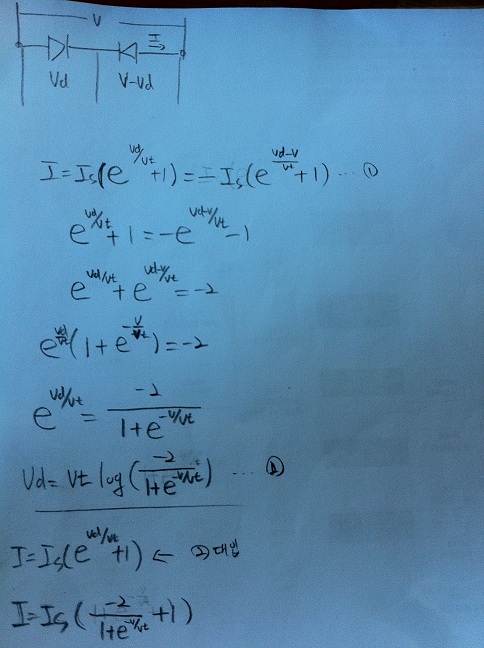 V
I
Vd V-Vd
I = Is(e^{Vd/Vt}+1) = -Is(e^{\frac{Vd-V}{Vt}}+1) ... ①
e^{Vd/Vt}+1 = -e^{Vd-V/Vt}-1
e^{Vd/Vt}+e^{Vd-V/Vt} = -2
e^{\frac{Vd}{Vt}}(1+e^{-\frac{V}{Vt}}) = -2
e^{Vd/Vt} = \frac{-2}{1+e^{-V/Vt}}
Vd = Vt log(\frac{-2}{1+e^{-V/Vt}}) ... ②
I = Is(e^{Vd/Vt}+1) ← ②대입
I = Is(\frac{-2}{1+e^{-V/Vt}}+1)